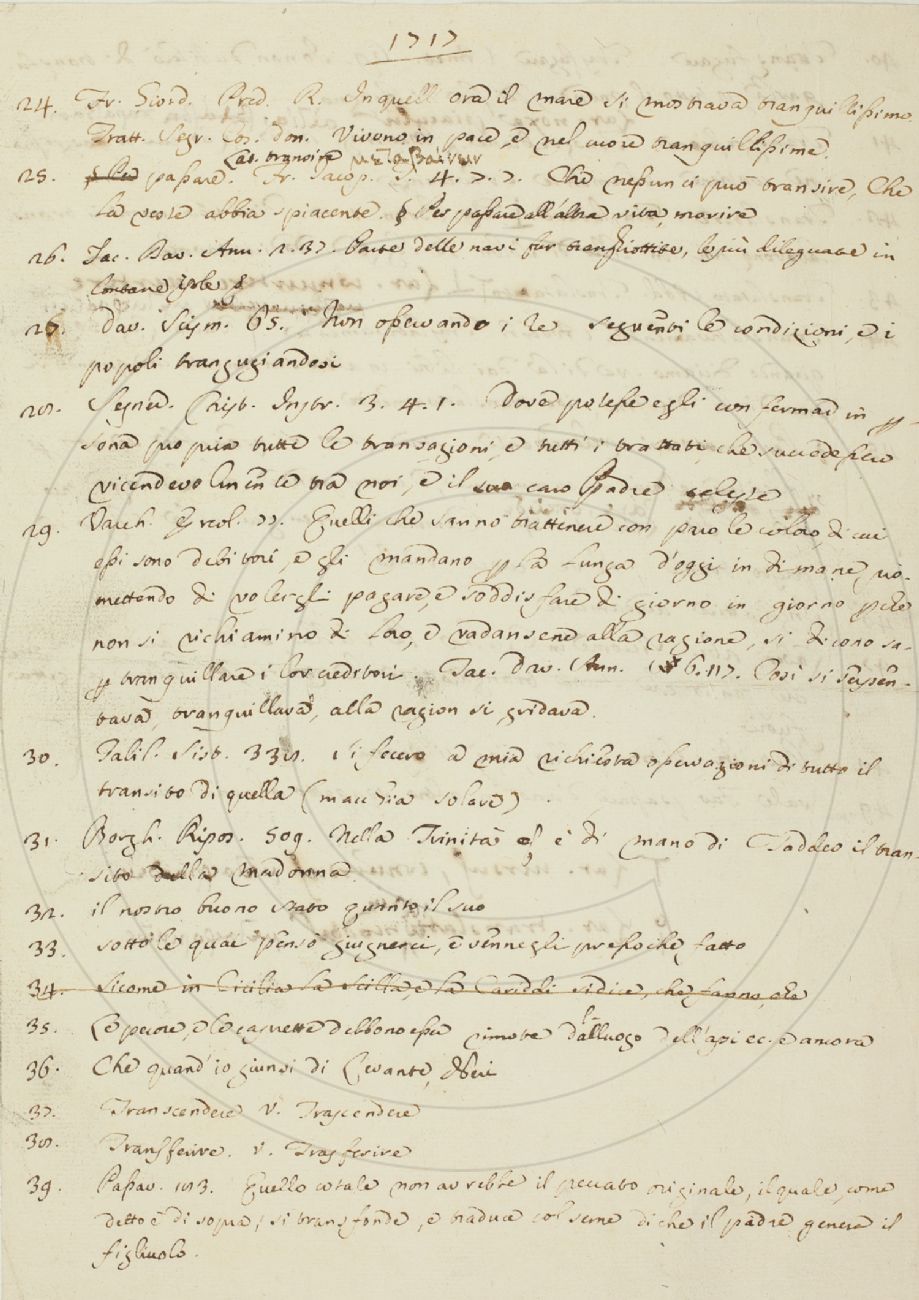 1717
24. Fr. Giord. Pred. R. In quell' ora il mare si mostrava tranquillissimo
Tratt. Segr. Cos. Don. Vivono in pace, e nel cuore tranquillissime.
Lat. transire μεταβαίνειν
25. passare. Fr. Jacop. T. 4. 7. 7. Che nessun ci può transire, Che
la veste abbia spiacente. § Per passare all'altra vita, morire
26. Tac. Dav. Ann. 2. 37. Parte delle navi fur tranghiottite, le più dileguate in
lontane isole
26. Dav. Scism. 65. Non osservando i re seguenti le condizioni, e i
popoli trangugiandosi
28. Segner. Crist. Instr. 3. 4. 1. Dove potesse egli confermar in p-
sona propria tutte le transazioni, e tutti i trattati, che succedessero
vicendevolmente tra noi, e il suo caro Padre celeste
29. Varch. Ercol. 77. Quelli che sanno trattenere con parole coloro, di cui
essi sono debitori, e gli mandano p la lunga d'oggi in dimane, pro-
mettendo di volergli pagare, e soddisfare di giorno in giorno pche
non si richiamino di loro, e vadansene alla ragione, si dicono sa-
p tranquillare i lor creditori. Tac. Dav. Ann. 6. 117. Così si
tava, tranquillava, alla ragion si gridava.
30. Galil. Sist. 338. Si fecero a mia richiesta osservazioni di tutto il
transito di quella (macchia solare).
31. Borgh. Ripos. 509. Nella Trinità è di mano di Taddeo il tran-
sito della Madonna.
32. il nostro buono stato quanto il suo
33. sotto le quai pensò giugnerci, e vennegli pressochè fatto
34. Sicome in Cicilia la Scilla, e la Cariddi si dice, che fanno, che
35. Le pecore, e le capre debbono esser rimote dal luogo dell'api ec. e ancora
36. Che quand' io giunsi di Levante, ebbi
37. Transcendere V. Trascendere
38. Transferire. V. Trasferire
39. Passav. 183. Quello cotale non avrebbe il peccato originale, il quale, come
detto è di sopra, si transfonde, e traduce col seme di che il padre genera il
figliuolo.